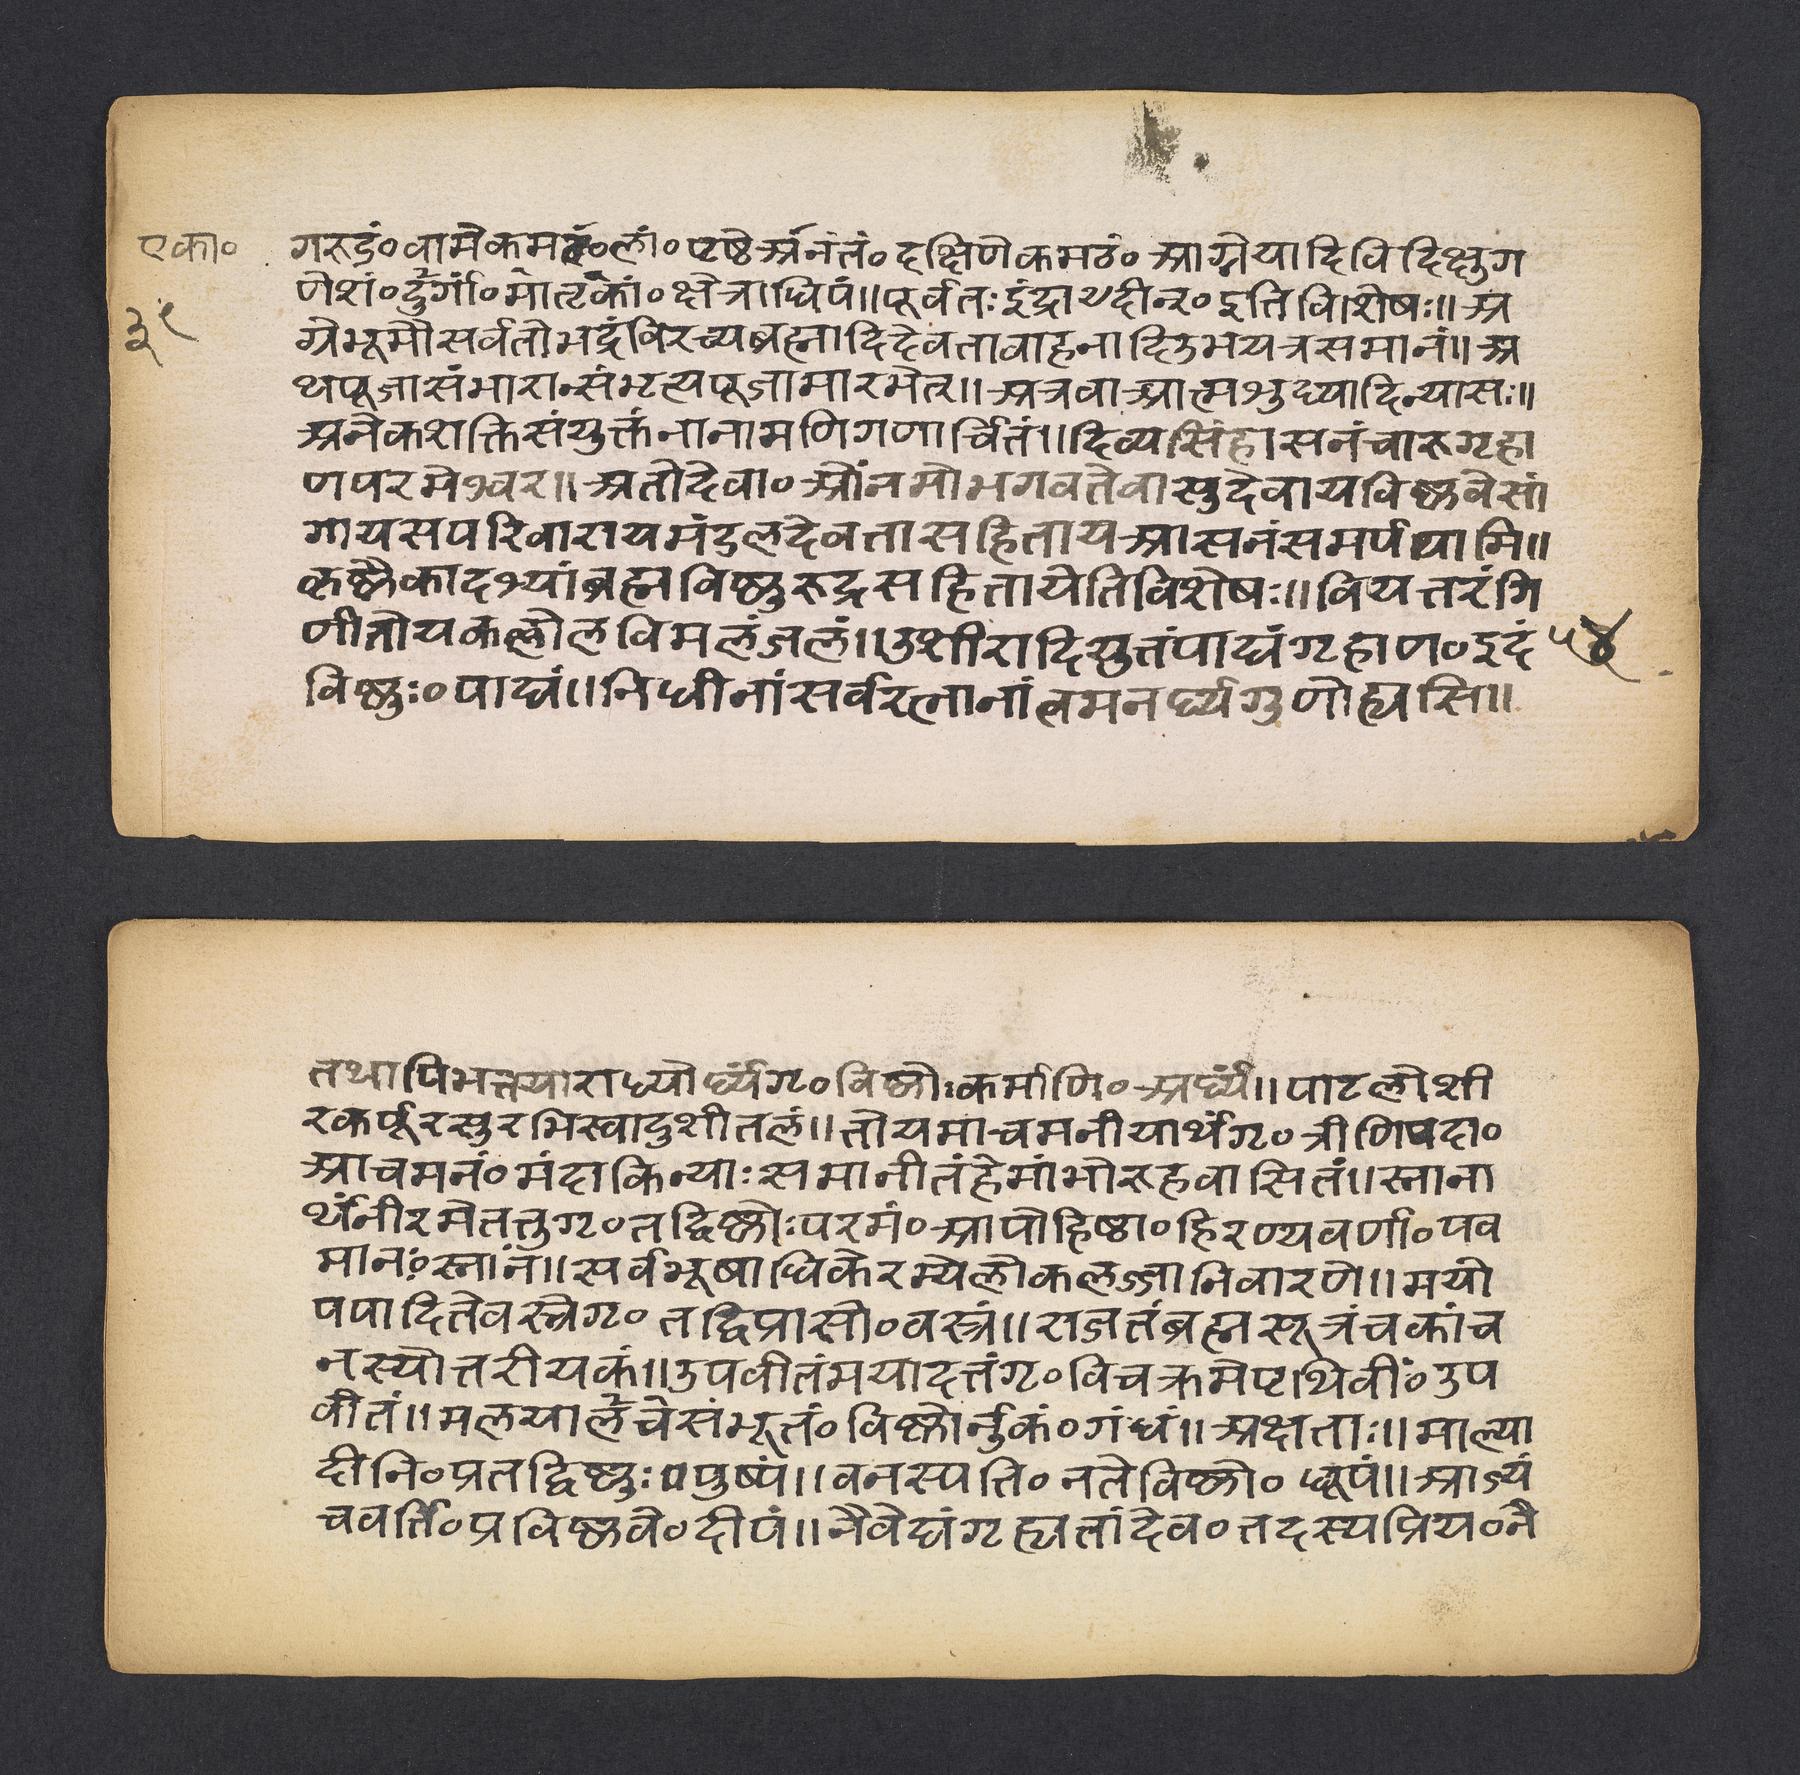 एका० गरुडं० वामेकमलां० पृष्ठेअनंतं० दक्षिणेकमठं० आग्नेयादिविदिक्षुग
३१ णेशं० दुर्गां० मातृकां० क्षेत्राधिपं॥ पूर्वतः इंद्राद्यदीन्० इति विशेषः॥ अ
ग्रेभूमौसर्वतोभद्रंविरच्यब्रह्मादिदेवतावाहनादिउभयत्रसमानं॥ अ
थपूजासंभारान्संभृत्यपूजामारभेत्॥ अत्रवाआत्मशुध्यादिन्यासः॥
अनेकशक्तिसंयुक्तंनानामणिगणार्चितं॥ दिव्यसिंहासनंचारुगृहा
णपरमेश्वर॥ अतोदेवा० ओंनमोभगवतेवासुदेवायविष्णवेसां
गायसपरिवारायमंडलदेवतासहितायआसनंसमर्पयामि॥
कृष्णैकादश्यांब्रह्मविष्णुरुद्रसहितायेतिविशेषः॥ वियत्तरंगि
णीतोयकल्लोलविमलंजलं॥ उशीरादियुतंपाद्यंगृहाण० इदं
विष्णुः० पाद्यं॥ निधीनांसर्वरत्नानांत्वमनर्घ्यगुणोह्यसि॥
तथापिभक्त्याराध्योर्घ्यंगृ० विष्णोःकर्माणि० अर्घ्यं॥ पाटलोशी
रकर्पूरसुरभिस्वादुशीतलं॥ तोयमाचमनीयार्थंगृ० त्रीणिपदा०
आचमनं० मंदाकिन्याःसमानीतंहेमांभोरुहवासितं॥ स्नाना
र्थंनीरमेतत्तुगृ० तद्विष्णोःपरमं० आपोहिष्ठा० हिरण्यवर्णा० पव
मानः० स्नानं॥ सर्वभूषाधिकेरम्येलोकलज्जानिवारणे॥ मयो
पपादितेवस्त्रेगृ० तद्विप्रासो० वस्त्रं॥ राजतंब्रह्मसूत्रंचकांच
नस्योत्तरीयकं॥ उपवीतंमयादत्तंगृ० विचक्रमेपृथिवीं० उप
वीतं॥ मलयाचलेसंभूतं० विष्णोर्नुकं० गंधं॥ अक्षताः॥ माल्या
दीनि० प्रतद्विष्णुः० पुष्पं॥ वनस्पति० नतेविष्णो० धूपं॥ आज्यं
चवर्ति० प्रविष्णवे० दीपं॥ नैवेद्यंगृह्यतांदेव० तदस्यप्रिय० नै